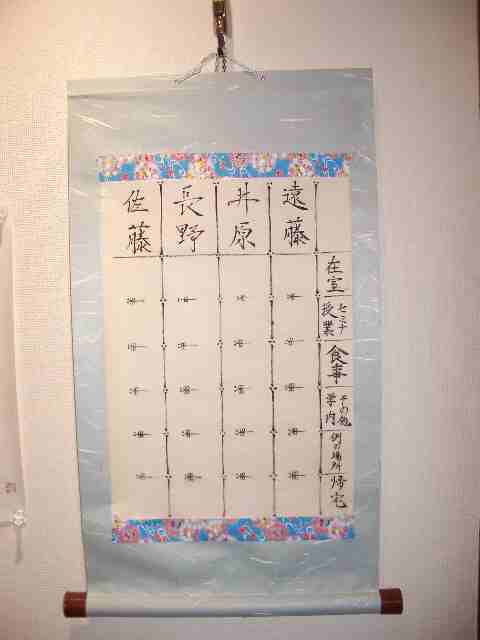 遠藤
井原
長野
佐藤
在室
セミナ
授業
食事
その他
学内
例の場所
帰宅